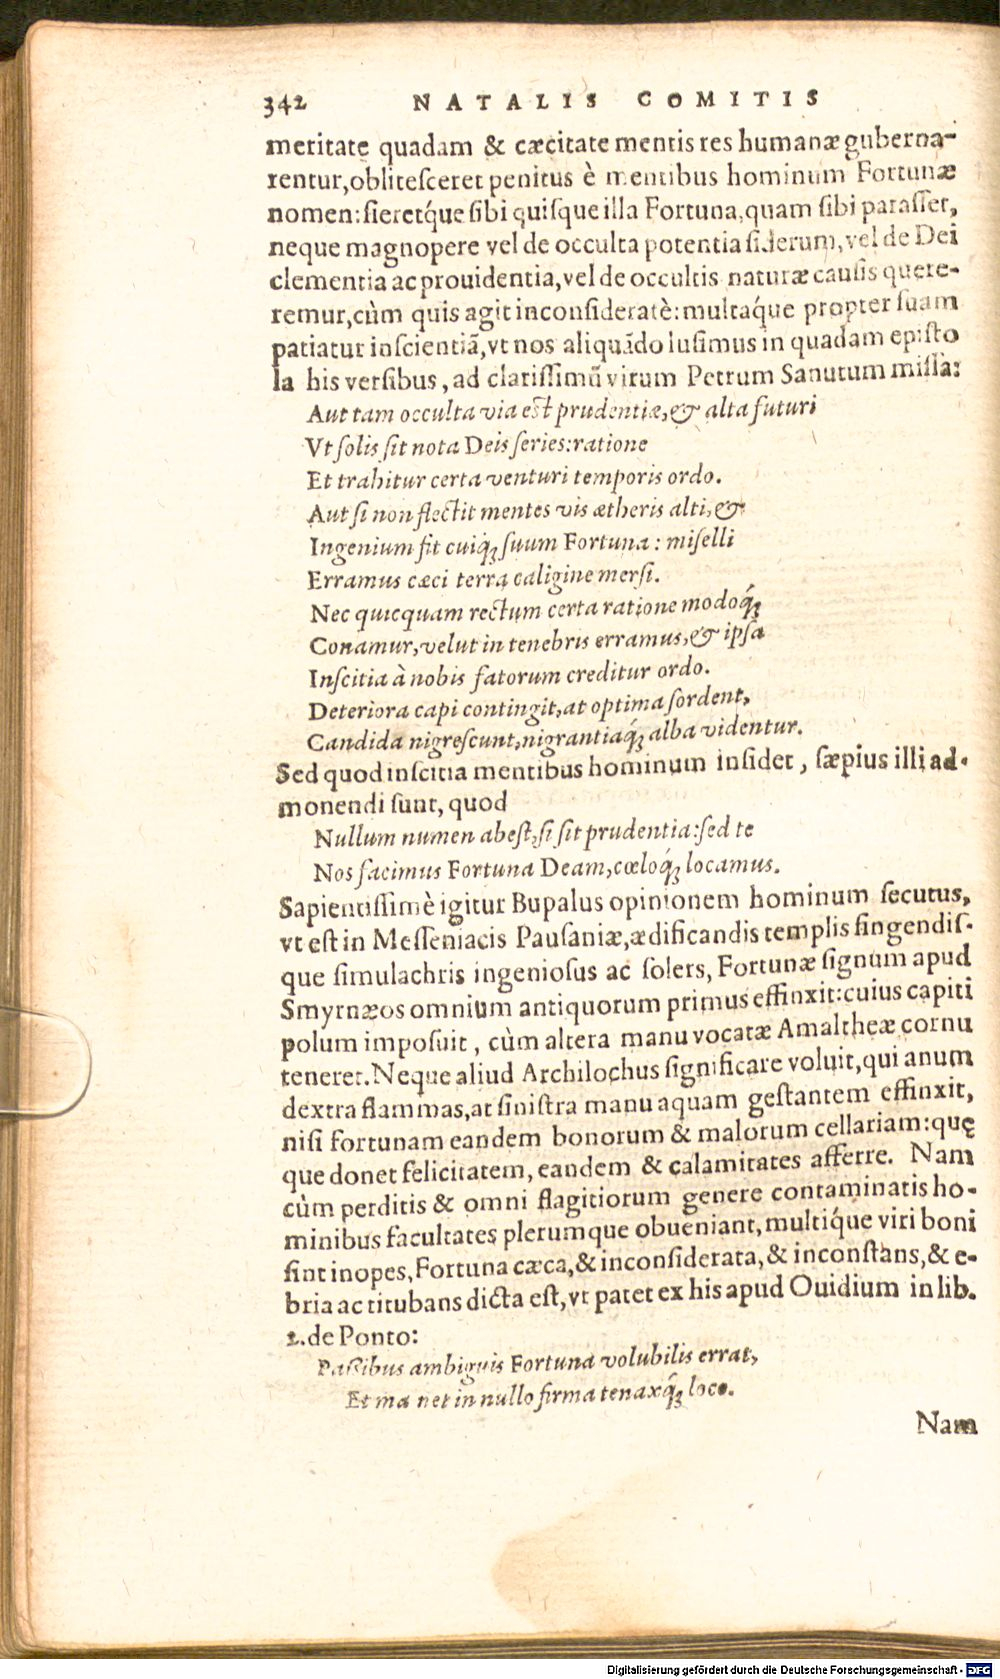 342 NATALIS COMITIS
meritate quadam & cæcitate mentis res humanæ guberna-
rentur, oblitesceret penitus è mentibus hominum Fortunæ
nomen: fieretq́ue sibi quisque illa Fortuna, quam sibi parasset,
neque magnopere vel de occulta potentia siderum, vel de Dei
clementia ac prouidentia, vel de occultis naturæ causis quere-
remur, cùm quis agit inconsideratè: multaq́ue propter suam
patiatur inscientiã, vt nos aliquãdo lusimus in quadam episto
la his versibus, ad clarissimũ virum Petrum Sanutum missa:
Aut tam occulta via est prudentiæ, & alta futuri
Vt solis sit nota Deis series: ratione
Et trahitur certa venturi temporis ordo.
Aut si non flectit mentes vis ætheris alti, &
Ingenium fit cuiqꝫ suum Fortuna: miselli
Erramus cæci terra caligine mersi.
Nec quicquam rectum certa ratione modoq́ꝫ
Conamur, velut in tenebris erramus, & ipsa
Inscitia à nobis fatorum creditur ordo.
Deteriora capi contingit, at optima sordent,
Candida nigrescunt, nigrantiaq́ꝫ alba videntur.
Sed quod inscitia mentibus hominum insidet, sæpius illi ad-
monendi sunt, quod
Nullum numen abest, si sit prudentia: sed te
Nos facimus Fortuna Deam, cœloq́ꝫ locamus.
Sapientissimè igitur Bupalus opinionem hominum secutus,
vt est in Messeniacis Pausaniæ, ædificandis templis fingendis-
que simulachris ingeniosus ac solers, Fortunæ signum apud
Smyrnæos omnium antiquorum primus effinxit: cuius capiti
polum imposuit, cùm altera manu vocatæ Amaltheæ cornu
teneret. Neque aliud Archilochus significare voluit, qui anum
dextra flammas, at sinistra manu aquam gestantem effinxit,
nisi fortunam eandem bonorum & malorum cellariam: quę
que donet felicitatem, eandem & calamitates afferre. Nam
cùm perditis & omni flagitiorum genere contaminatis ho-
minibus facultates plerumque obueniant, multiq́ue viri boni
sint inopes, Fortuna cæca, & inconsiderata, & inconstans, & e-
bria ac titubans dicta est, vt patet ex his apud Ouidium in lib.
2. de Ponto:
Passibus ambiguis Fortuna volubilis errat,
Et manet in nullo firma tenaxq́ꝫ loco.
Nam
Digitalisierung gefördert durch die Deutsche Forschungsgemeinschaft - DFG